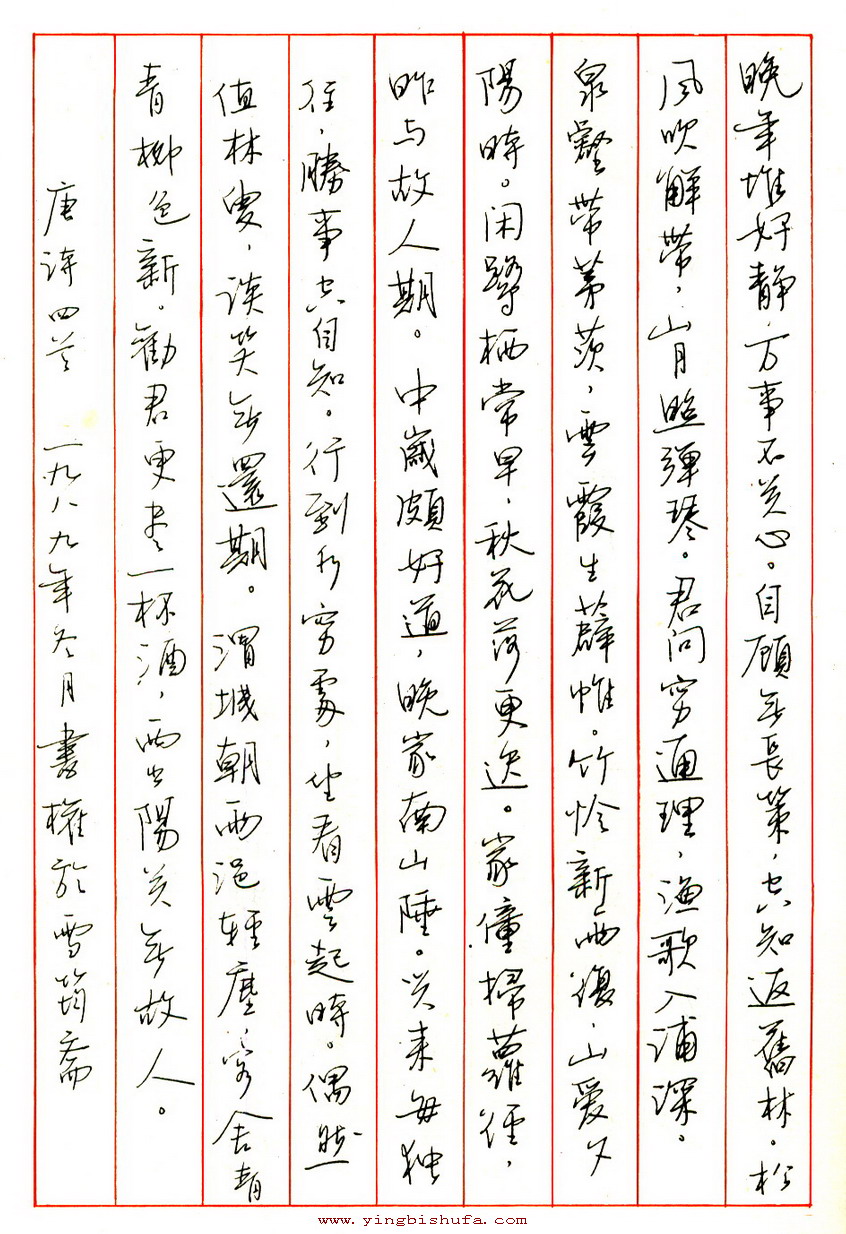 晚年惟好静，万事不关心。自顾无長策，空知返舊林。松
风吹解带，山月照弹琴。君问穷通理，渔歌入浦深。
泉壑带茅茨，雲霞生薜帷。竹怜新雨後，山爱夕
陽時。闲鹭栖常早，秋花落更迟。家僮掃蘿径，
昨与故人期。中嵗颇好道，晚家南山陲。兴来每独
往，勝事空自知。行到水穷處，坐看雲起時。偶然
值林叟，谈笑无還期。渭城朝雨浥轻塵，客舍青
青柳色新。勸君更尽一杯酒，西出陽关无故人。
唐诗四首 一九八九年冬月書權於雪筠斋
www.yingbishufa.com